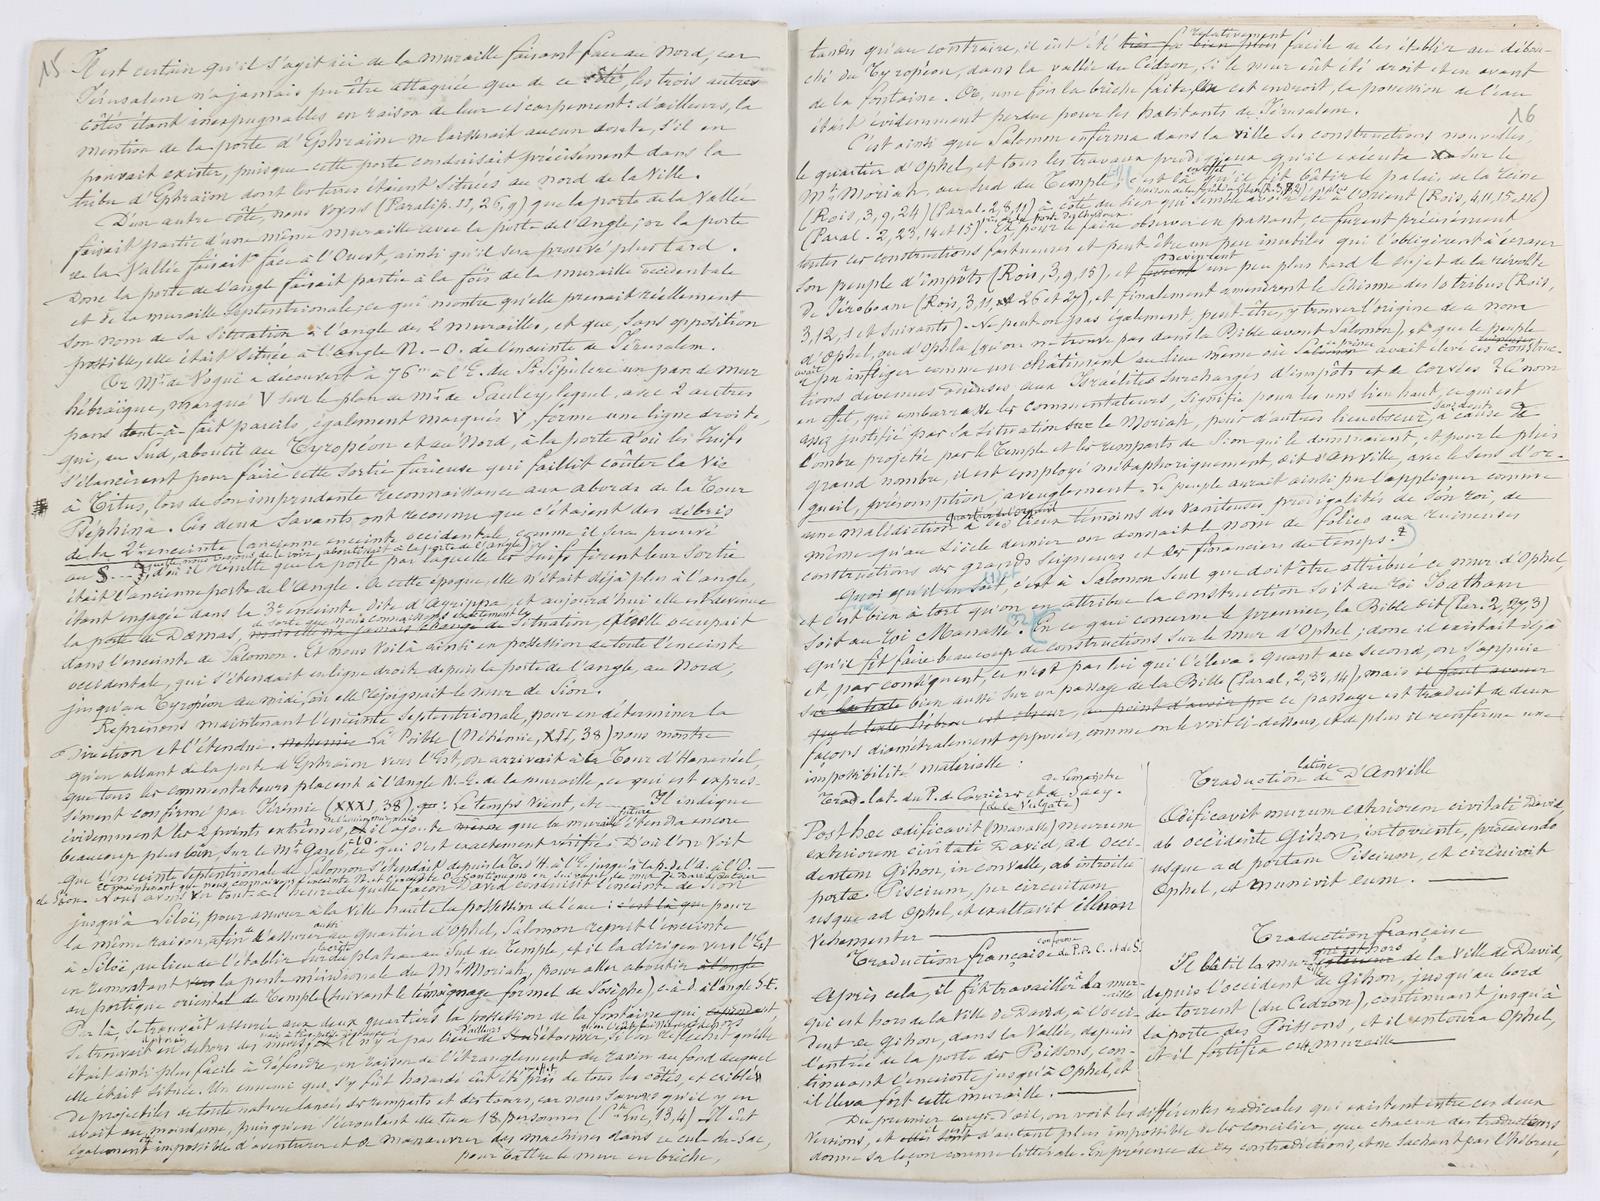 15
Il est certain qu'il s'agit ici de la muraille faisant face au nord, car
Jérusalem n'a jamais pu être attaquée que de ce côté, les trois autres
côtés étant inexpugnables en raison de leur escarpement : d'ailleurs, la
mention de la porte d'Ephraïm ne laisserait aucun doute, s'il en
pouvait exister, puisque cette porte conduisait précisément dans la
tribu d'Ephraïm dont les terres étaient situées au nord de la Ville.
D'un autre côté, nous voyons (Paralip. II, 26, 9) que la porte de la Vallée
faisait partie d'une même muraille avec la porte de l'Angle ; or la porte
de la Vallée faisait face à l'Ouest, ainsi qu'il sera prouvé plus tard.
Donc la porte de l'angle faisait partie à la fois de la muraille occidentale
et de la muraille septentrionale, ce qui montre qu'elle prenait réellement
son nom de sa situation à l'angle des 2 murailles, et que, sans opposition
possible, elle était située à l'angle N.-O. de l'enceinte de Jérusalem.
Or Mr de Vogüé a découvert à 76m à l'E. du St Sépulcre un pan de mur
hébraïque, marqué V sur le plan de Mr de Saulcy, lequel, avec 2 autres
pans tout-à-fait pareils, également marqués V, forme une ligne droite,
qui, au Sud, aboutit au Tyropéon et au Nord, à la porte d'où les Juifs
s'élancèrent pour faire cette sortie furieuse qui faillit coûter la vie
à Titus, lors de son imprudente reconnaissance aux abords de la Tour
Pséphina. Ces deux savants ont reconnu que c'étaient des débris
de la 2e enceinte (ancienne enceinte occidentale, comme il sera prouvé
d'où il résulte que la porte par laquelle les Juifs firent leur sortie
était l'ancienne porte de l'Angle. A cette époque, elle n'était déjà plus à l'angle,
étant engagée dans la 3e enceinte, dite d'Agrippa, et aujourd'hui elle est devenue
la porte de Damas, de sorte que nous connaissons exactement la situation, qu'elle occupait
dans l'enceinte de Salomon. Et nous voilà ainsi en possession de toute l'enceinte
occidentale, qui s'étendait en ligne droite depuis la porte de l'angle, au Nord,
jusqu'au Tyropéon au midi, où elle rejoignait le mur de Sion.
Reprenons maintenant l'enceinte septentrionale, pour en déterminer la
direction et l'étendue. Néhémie La Bible (Néhémie, XII, 38) nous montre
qu'en allant de la porte d'Ephraïm vers l'Est, on arrivait à la Tour d'Hananéel,
que tous les commentateurs placent à l'Angle N.E. de la muraille, ce qui est expres-
sément confirmé par Jérémie (XXXI, 38), : Le temps vient, etc — Il indique
évidemment les 2 points extrêmes, et il ajoute même que la muraille s'étendra encore
beaucoup plus loin, sur le Mt Gareb, ce qui s'est exactement vérifié. D'où l'on voit
que l'enceinte septentrionale de Salomon s'étendait depuis la T. d'H. à l'E. jusqu'à la p. de l'A. à l'O.
de Sion. Nous avons vu tout-à-l'heure de quelle façon David conduisit l'enceinte de Sion
jusqu'à Siloë, pour assurer à la Ville haute la possession de l'eau : c'est là que pour
la même raison, afin d'assurer aussi au quartier d'Ophel, Salomon reprit l'enceinte
à Siloë, au lieu de l'établir sur du plateau au Sud du Temple, et il la dirigea vers l'Est
en remontant vers la pente méridionale du Mt Moriah, pour aller aboutir à l'angle
au portique oriental de Temple (suivant le témoignage formel de Josèphe) c-à-d. à l'angle S.-E.
Par là, se trouvait assurée aux deux quartiers la possession de la fontaine qui, cependant,
se trouvait en dehors des murs, il n'y a pas lieu de s'en étonner, si l'on réfléchit qu'elle
était ainsi plus facile à défendre, en raison de l'étranglement du ravin au fond duquel
elle était située. Un ennemi qui s'y fût hasardé eût été pris de tous les côtés, et criblé
de projectiles de toute nature lancés des remparts et des tours, car nous savons qu'il y en
avait au moins une, puisqu'en s'écroulant elle tua 18 personnes (St Luc, 13, 4) Il est
également impossible d'aventurer et de manœuvrer des machines dans ce cul-de-sac,
pour battre le mur en brèche,
16
tandis qu'au contraire, il eût été très fa bien plus relativement facile de les établir au débou-
ché du Tyropéon, dans la vallée du Cédron, si le mur eût été droit et en avant
de la fontaine. Or, une fois la brèche faite, en cet endroit, la possession de l'eau
était évidemment perdue pour les habitants de Jérusalem.
C'est ainsi que Salomon enferma dans la ville ses constructions nouvelles,
le quartier d'Ophel, et tous les travaux prodigieux qu'il exécuta sur le
Mt Moriah, au Sud du Temple : c'est là en effet qu'il fit bâtir le palais de la reine
(Rois, 3, 9, 24) (Paral. 2, 8, 11) à côté du sien qui semble avoir été à l'Orient (Rois, 4, 11, 15 et 16)
(Paral. 2, 23, 14 et 15). Et pour le faire observer en passant, ce furent précisément
toutes ces constructions fastueuses et peut être un peu inutiles qui l'obligèrent à écraser
son peuple d'impôts (Rois, 3, 9, 15), et devinrent un peu plus tard le sujet de la révolte
de Jéroboam (Rois, 3, 11, 26 et 27), et finalement amenèrent le schisme des 10 tribus (Rois,
3, 12, 1 et suivants). Ne peut-on pas également, peut-être, y trouver l'origine de ce nom
d'Ophel, ou d'Ophla (qu'on ne trouve pas dans la Bible avant Salomon), et que le peuple
avait pu infliger comme un châtiment au lieu même où ce prince avait élevé ces construc-
tions devenues odieuses aux Israélites surchargés d'impôts et de corvées ? Ce nom
en effet, qui embarrasse les commentateurs, signifie pour les uns lieu haut, ce qui est
assez justifié par sa situation sur le Moriah, pour d'autres lieu obscur, sans doute à cause de
l'ombre projetée par le Temple et les remparts de Sion qui le dominaient, et pour le plus
grand nombre, il est employé métaphoriquement, dit d'Anville, avec le sens d'or-
gueil, présomption, aveuglement. Le peuple aurait ainsi pu l'appliquer comme
une malédiction à ces lieux témoins des vaniteuses prodigalités de son roi, de
même qu'au siècle dernier on donnait le nom de folies aux ruineuses
constructions des grands seigneurs et des financiers du temps.
Quoi qu'il en soit, c'est à Salomon seul que doit être attribué ce mur d'Ophel,
et c'est bien à tort qu'on en attribue la construction soit au roi Joatham
soit au roi Manassé. En ce qui concerne le premier, la Bible dit (Par. 2, 27, 3)
qu'il fit faire beaucoup de constructions sur le mur d'Ophel ; donc il existait déjà
et, par conséquent, ce n'est pas lui qui l'éleva. Quant au second, on s'appuie
bien aussi sur un passage de la Bible (Paral, 2, 33, 14), mais il faut avouer
que le texte hébreu est obscur, ce passage est traduit de deux
façons diamétralement opposées, comme on le voit ci-dessous, et de plus il renferme une
impossibilité matérielle :
Trad. lat. du P. de Carrières et de Sacy.
(de la Vulgate)
Post hæc ædificavit (Manassé) murum
exteriorem civitatis David, ad occi-
dentem Gihon, in convalle, ab introitu
portæ Piscium, per circuitum
usque ad Ophel, et exaltavit illum
vehementer
Traduction française conforme du P. C. et de S.
Après cela, il fit travailler à la mur-
aille
qui est hors de la Ville de David, à l'occi-
dent de Gihon, dans la Vallée, depuis
l'entrée de la porte des Poissons, con-
tinuant l'enceinte jusqu'à Ophel, et
il éleva fort cette muraille.
Traduction latine de D'Anville
Ædificavit murum exteriorem civitati David,
ab occidente Gihon, in torrente, procedendo
usque ad portam Piscium, et circuivit
Ophel, et munivit eum.
Traduction française
Il bâtit la mur qui est hors de la Ville de David,
depuis l'occident de Gihon, jusqu'au bord
du torrent (du Cédron), continuant jusqu'à
la porte des Poissons, et il entoura Ophel,
et il fortifia cette muraille
Du premier coup d'œil, on voit les différences radicales qui existent entre ces deux
versions, et elles sont d'autant plus impossible de les concilier, que chacun des traducteurs
donne sa leçon comme littérale. En présence de ces contradictions, et ne sachant pas l'hébreu,